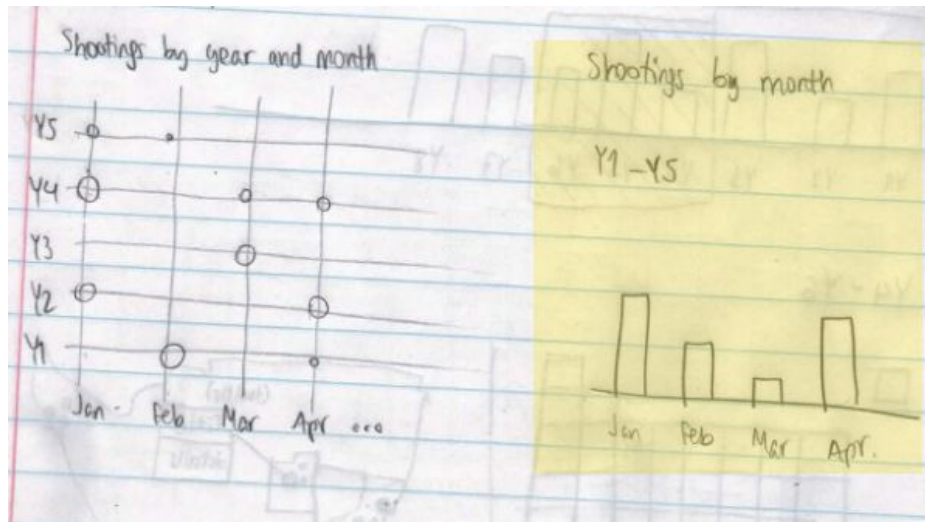 Shootings by year and month
Y5
Y4
Y3
Y2
Y1
Jan Feb Mar Apr ...
Shootings by month
Y1 - Y5
Jan Feb Mar Apr.